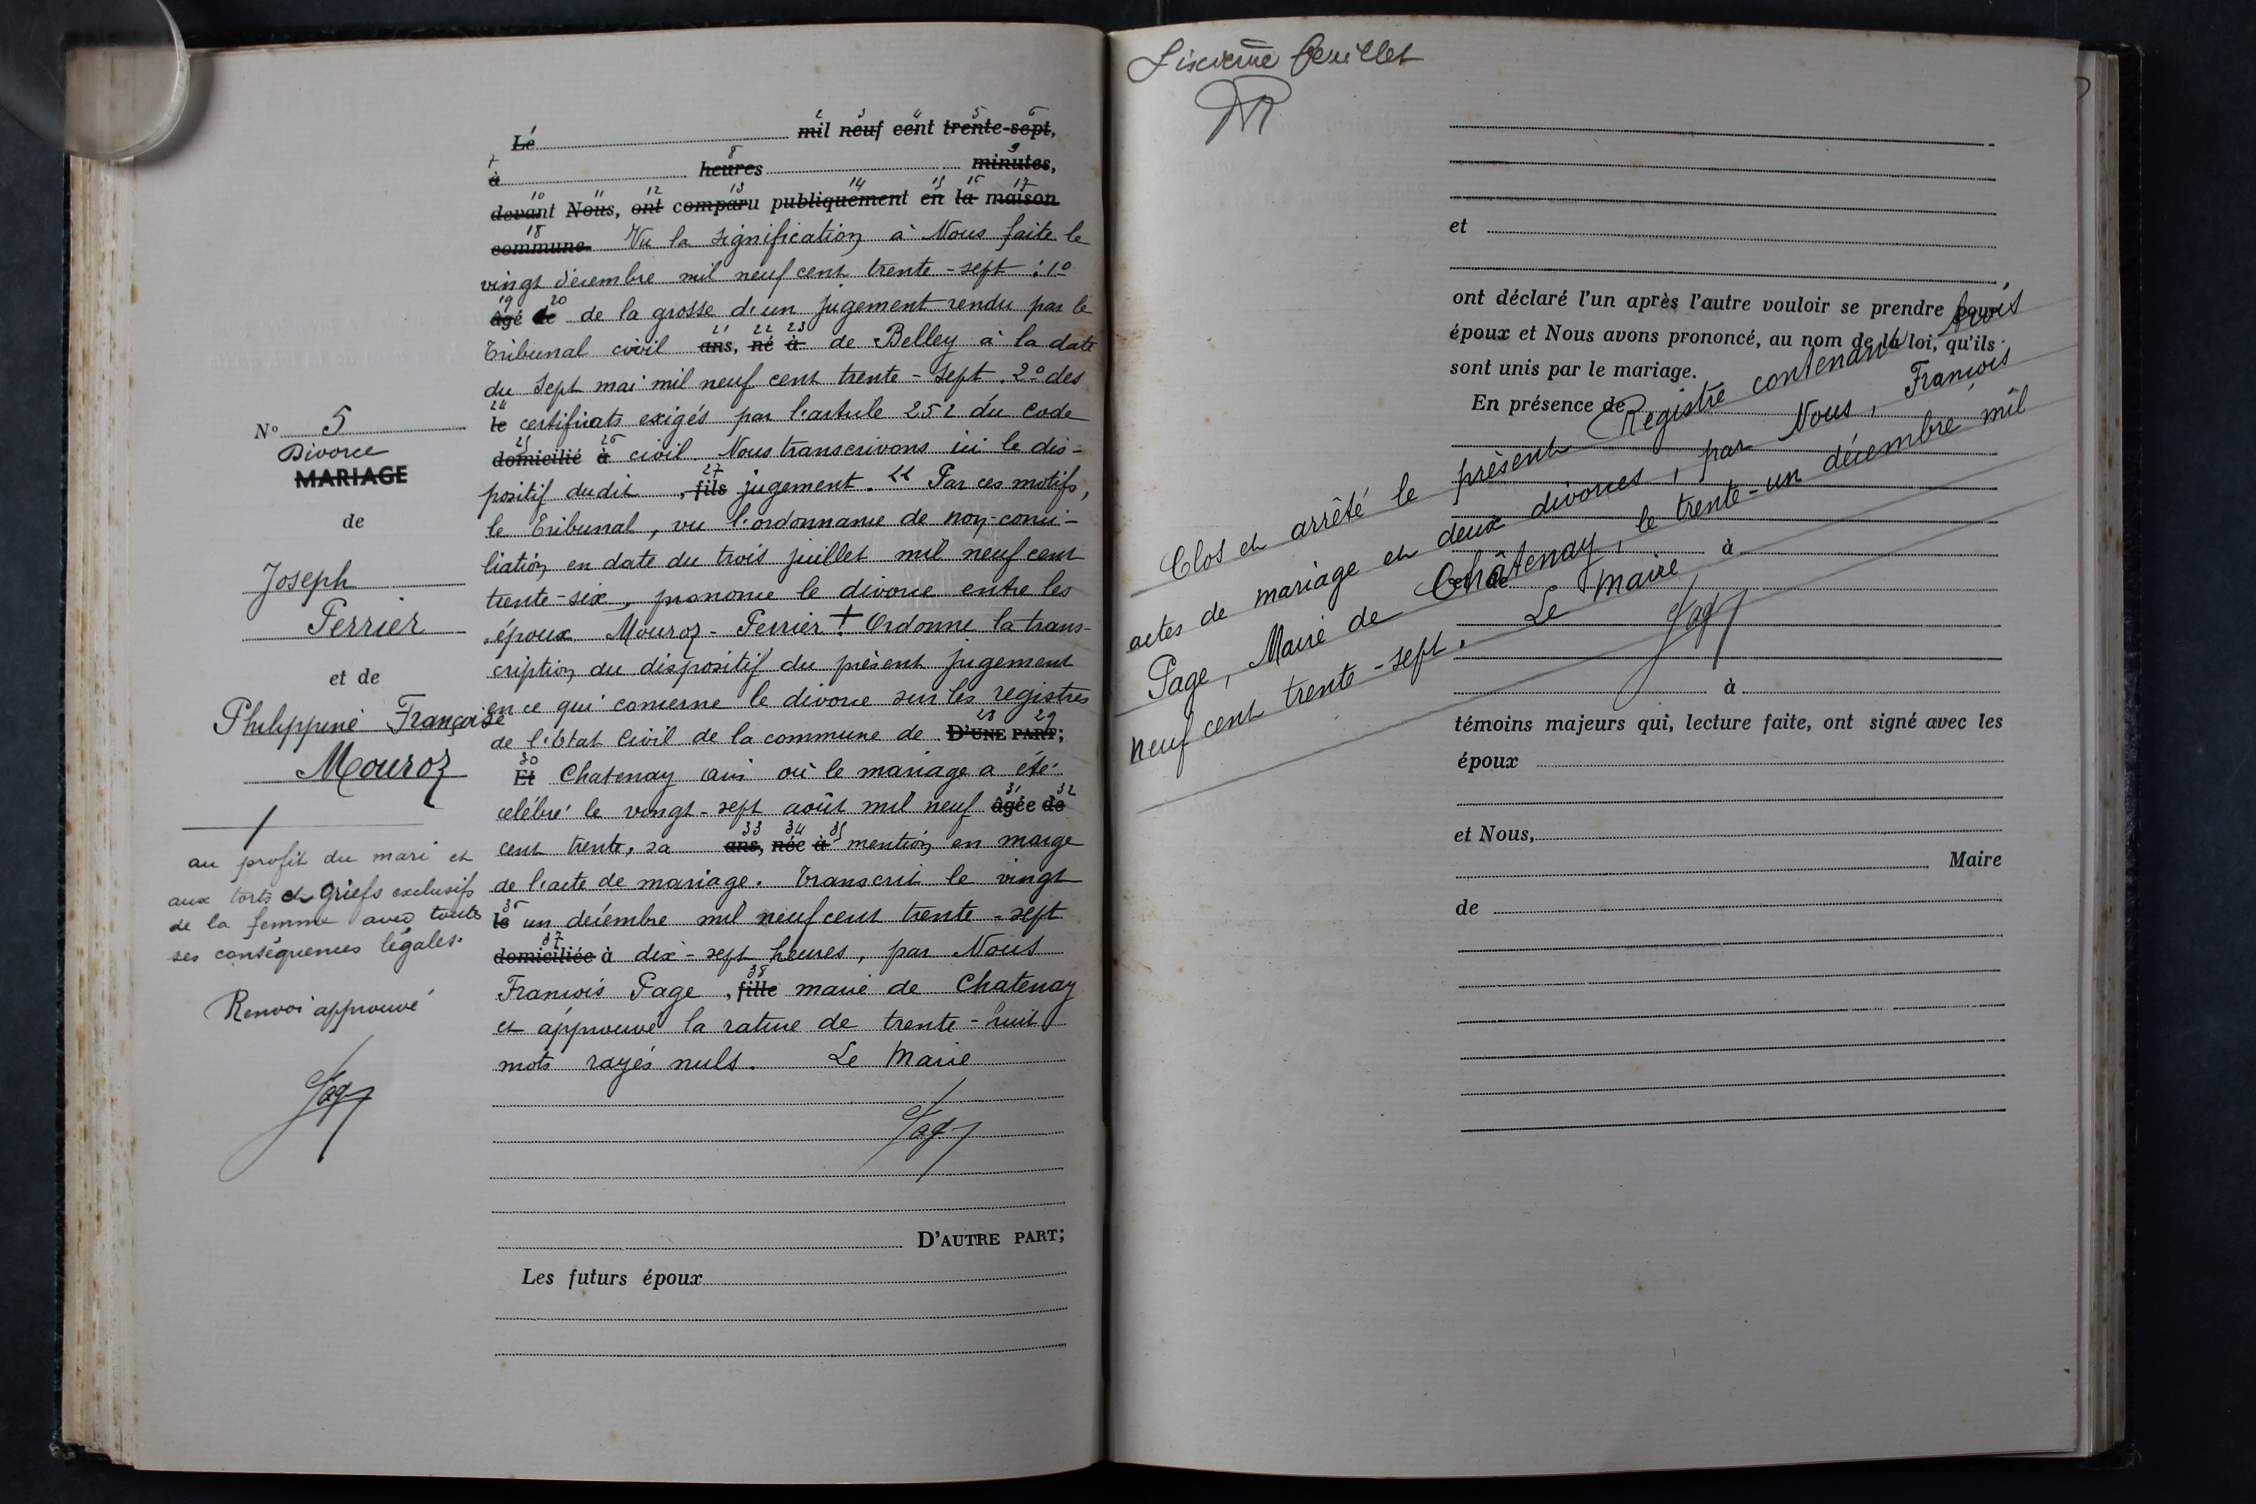 N° 5
Divorce
MARIAGE
de
Joseph
Perrier
et de
Philippine Françoise
Mouroz
+
au profit du mari et
aux torts et griefs exclusifs
de la femme avec toutes
ses conséquences légales.
Renvoi approuvé
Page
1 2 3 4 5 6
Le mil neuf cent trente-sept,
7 8 9
à heures minutes,
10 11 12 13 14 15 16 17
devant Nous, ont comparu publiquement en la maison
18
commune. Vu la signification à Nous faite le
vingt décembre mil neuf cent trente-sept : 1°
19 20
âgé de de la grosse d'un jugement rendu par le
21 22 23
Tribunal civil ans, né à de Belley à la date
du sept mai mil neuf cent trente-sept. 2° des
24
le certificats exigés par l'article 252 du Code
25 26
domicilié à civil. Nous transcrivons ici le dis-
27
positif dudit , fils jugement. « Par ces motifs,
le Tribunal, vu l'ordonnance de non-conci-
liation en date du trois juillet mil neuf cent
trente-six, prononce le divorce entre les
époux Mouroz-Perrier + Ordonne la trans-
cription du dispositif du présent jugement
en ce qui concerne le divorce sur les registres
28 29
de l'Etat Civil de la commune de D'UNE PART;
30
Et Chatenay ain où le mariage a été
31 32
célébré le vingt-sept août mil neuf âgée de
33 34 35
cent trente, sa ans, née à mention en marge
de l'acte de mariage. Transcrit le vingt
36
le un décembre mil neuf cent trente-sept
37
domiciliée à dix-sept heures, par Nous
38
François Page , fille maire de Chatenay
et approuvé la rature de trente-huit
mots rayés nuls. Le Maire
Page
D'AUTRE PART;
Les futurs époux
Sixième feuillet
et
ont déclaré l'un après l'autre vouloir se prendre pour
époux et Nous avons prononcé, au nom de la loi, qu'ils
sont unis par le mariage.
En présence de
à
et de
à
témoins majeurs qui, lecture faite, ont signé avec les
époux
et Nous,
Maire
de
Clos et arrêté le présent Registre contenant trois
actes de mariage et deux divorces, par Nous, François
Page, Maire de Châtenay, le trente-un décembre mil
neuf cent trente-sept. Le Maire
Page